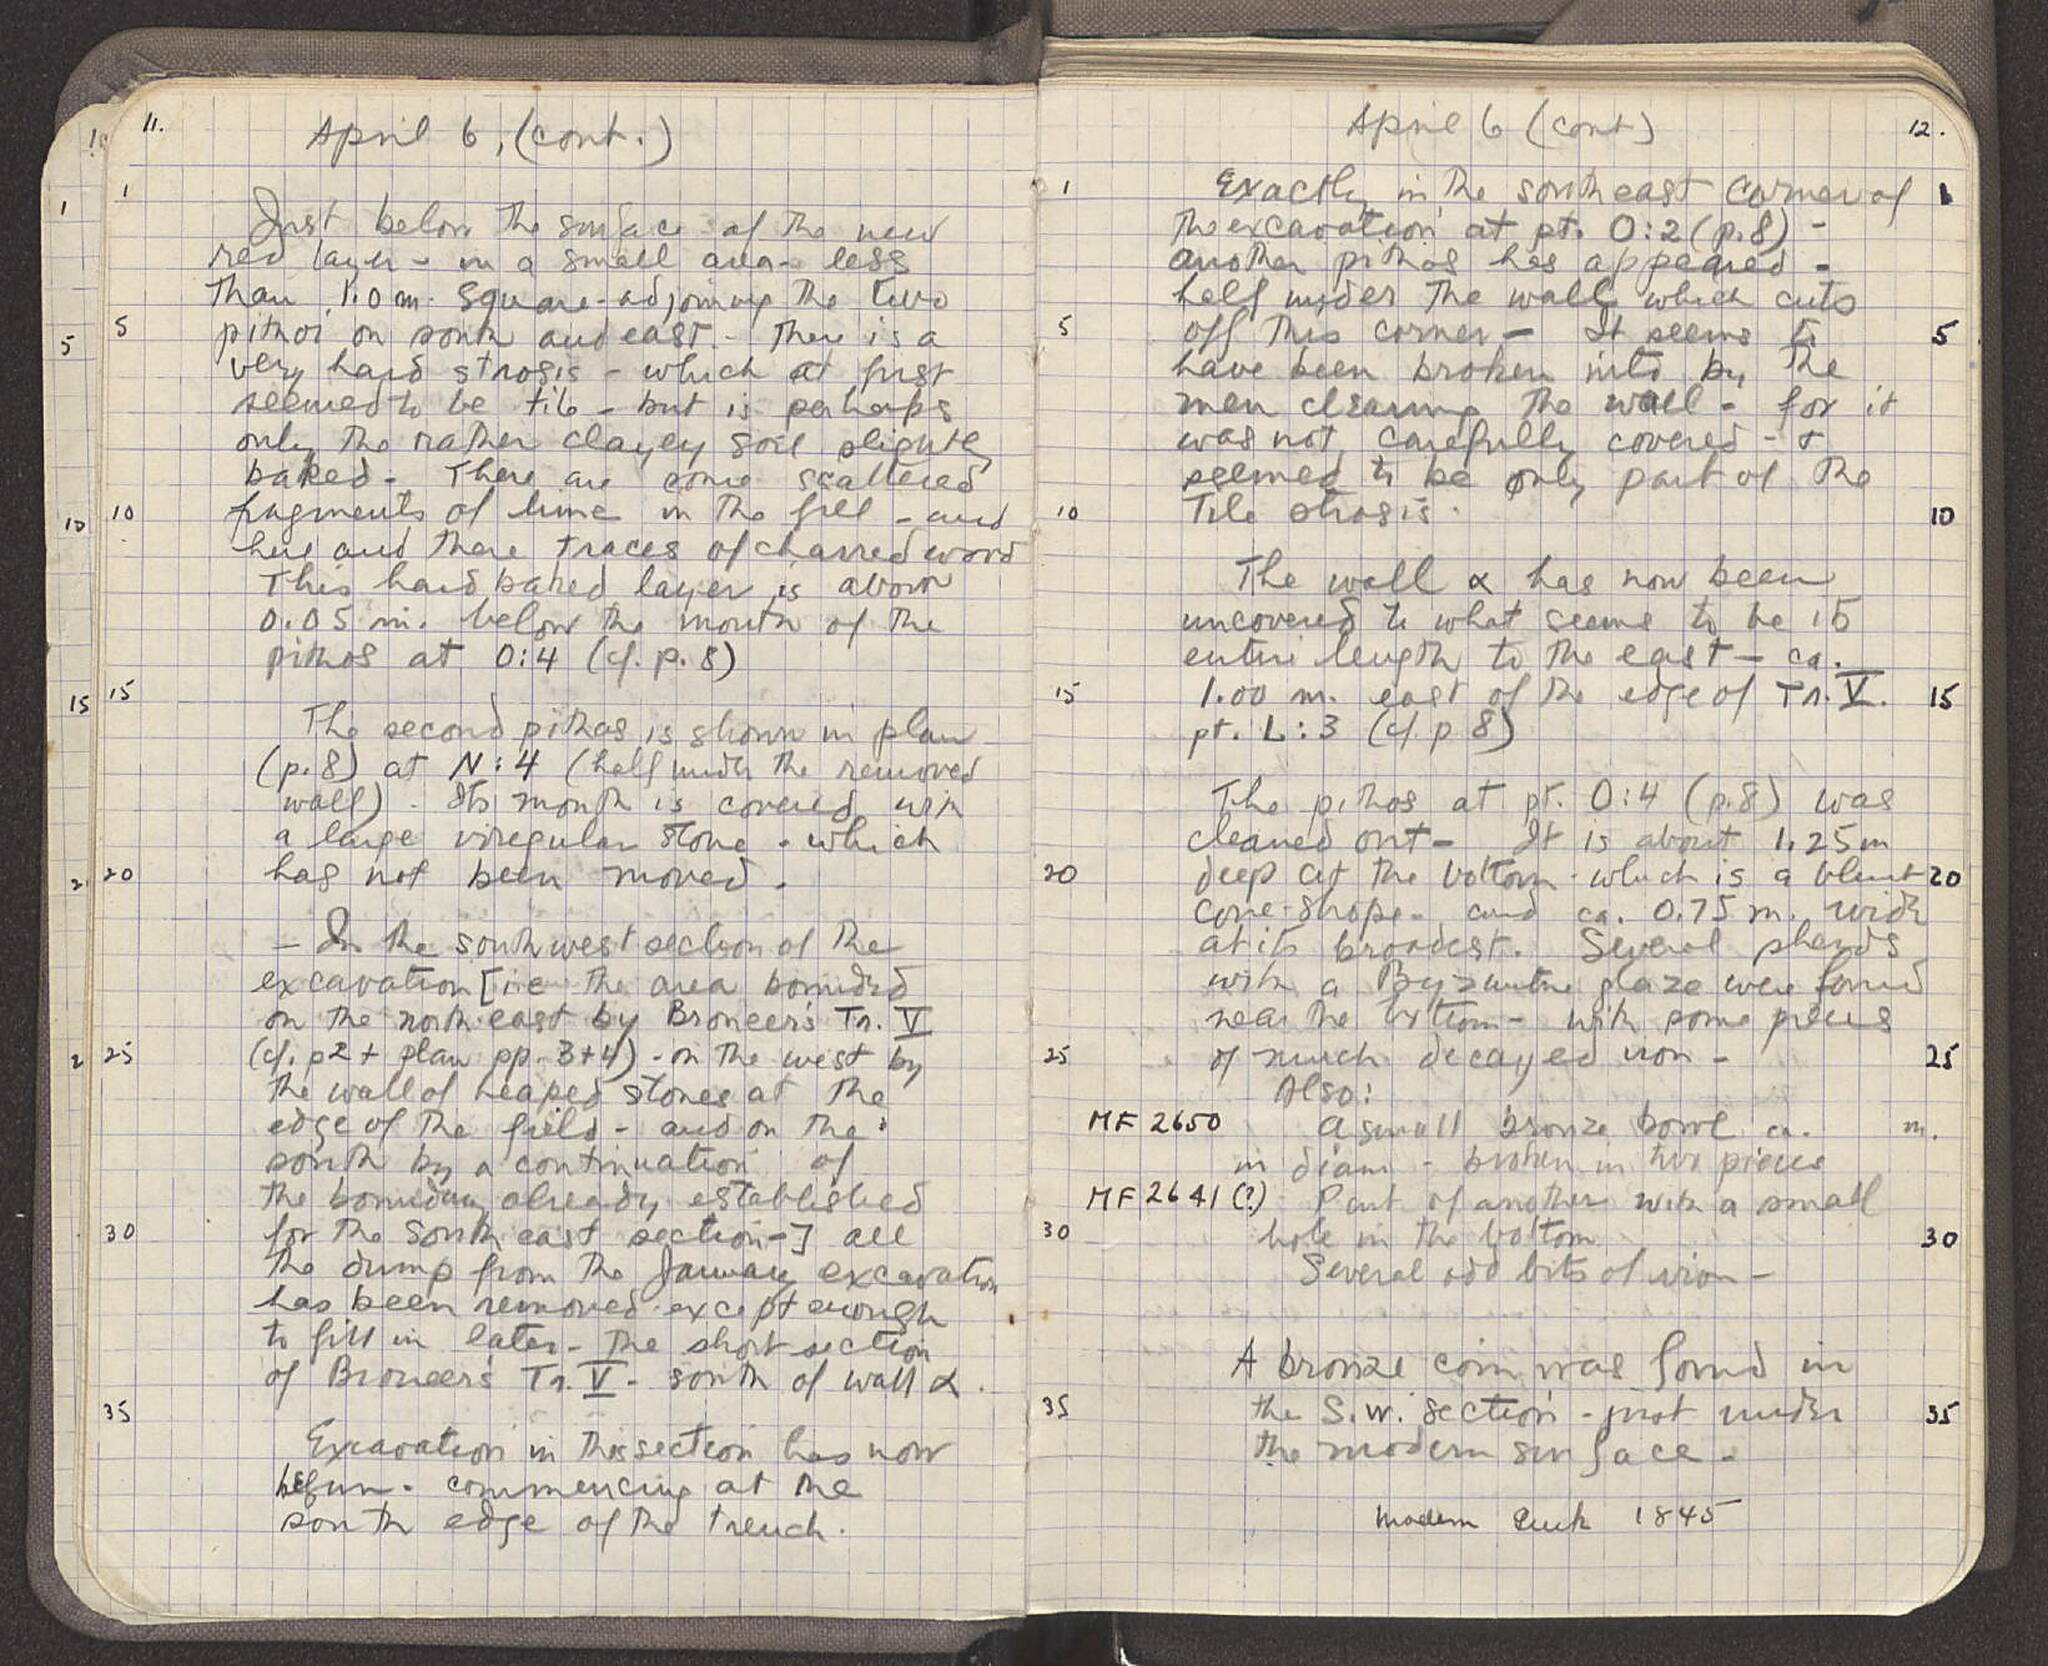 11.
April 6, (cont.)
Just below the surface of the new
red layer - in a small area - less
than 1.0 m. square - adjoining the two
pithoi on south and east. - There is a
very hard strosis - which at first
seemed to be tile - but is perhaps
only the rather clayey soil slightly
baked. There are some scattered
fragments of lime in the fill - and
here and there traces of charred wood
This hard baked layer is about
0.05 m. below the mouth of the
pithos at O:4 (cf. p. 8)
The second pithos is shown in plan
(p. 8) at N:4 (half under the removed
wall). Its mouth is covered with
a large irregular stone - which
has not been moved.
- In the southwest section of the
excavation [i.e the area bounded
on the northeast by Broneer's Tr. V
(cf. p 2 + plan pp. 3+4) - on the west by
the wall of heaped stones at the
edge of the field - and on the
south by a continuation of
the boundary already established
for the South east section -] all
the dump from the January excavation
has been removed except enough
to fill in later - the short section
of Broneer's Tr. V - south of wall α.
Excavation in this section has now
begun - commencing at the
south edge of the trench.
1
5
10
15
20
25
30
35
12.
April 6 (cont)
Exactly in the southeast corner of
the excavation at pt. O:2 (p. 8) -
another pithos has appeared -
half under the wall which cuts
off this corner - It seems to
have been broken into by the
men clearing the wall - for it
was not carefully covered - +
seemed to be only part of the
Tile strosis.
The wall α has now been
uncovered to what seems to be its
entire length to the east - ca.
1.00 m. east of the edge of Tr. V.
pt. L:3 (cf. p 8)
The pithos at pt. O:4 (p. 8) was
cleaned out - It is about 1.25 m
deep at the bottom - which is a blunt
cone-shape - and ca. 0.75 m. wide
at its broadest. Several sherds
with a Byzantine glaze were found
near the bottom - with some pieces
of much decayed iron -
Also:
MF 2650 A small bronze bowl ca. m.
in diam - broken in two pieces
MF 2641 (?) Part of another with a small
hole in the bottom
Several odd bits of iron -
A bronze coin was found in
the S.W. section - just under
the modern surface -
Modern Greek 1845
1
5
10
15
20
25
30
35